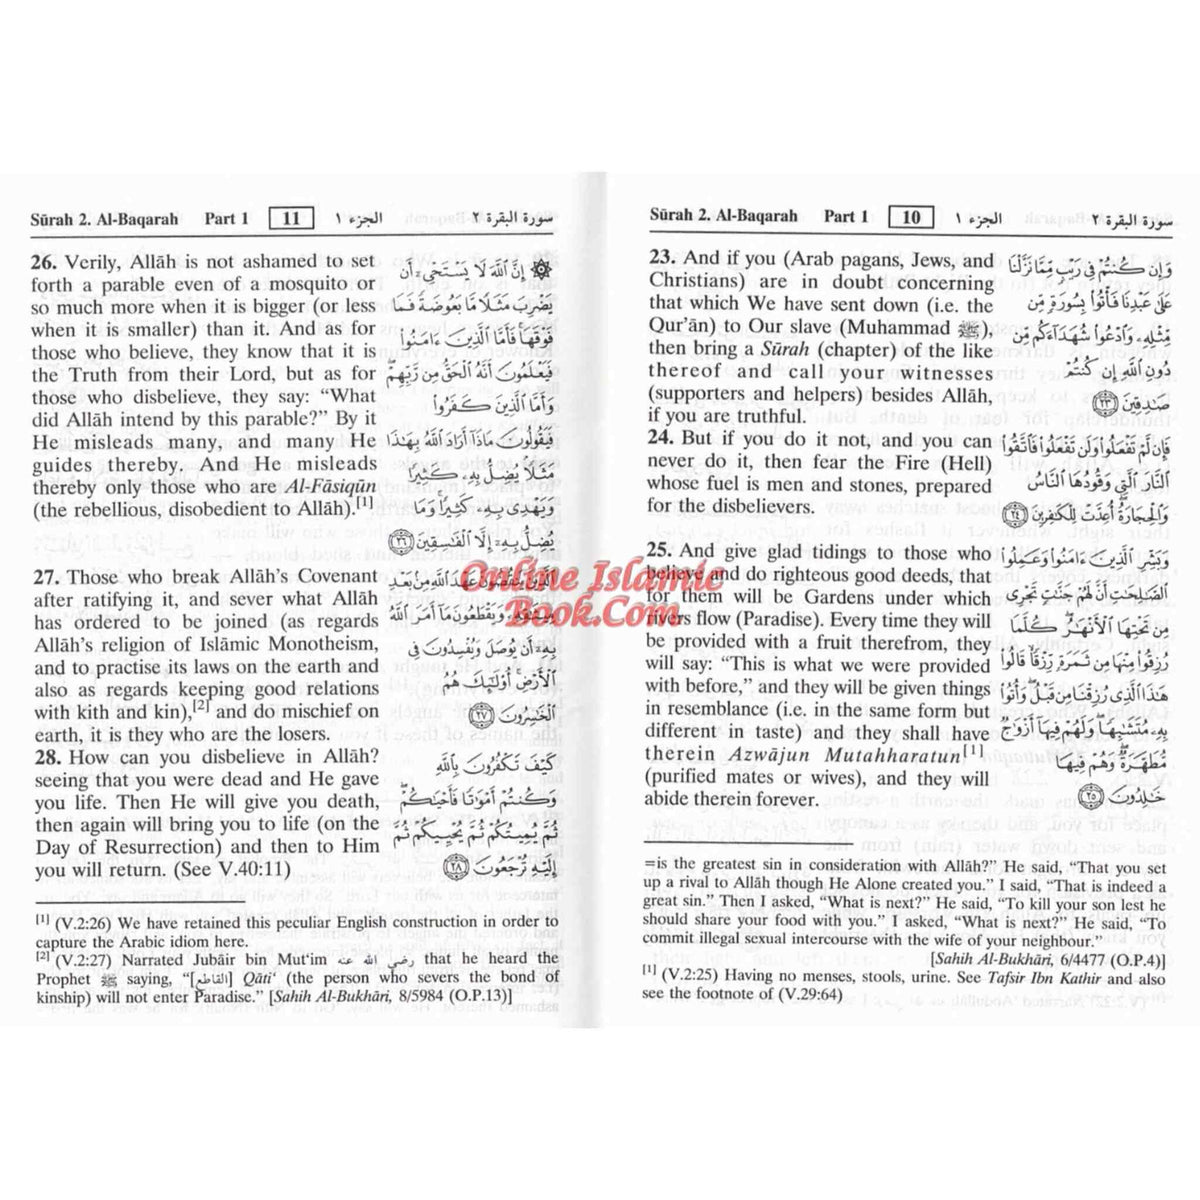 Sūrah 2. Al-Baqarah Part 1 10 الجزء ١ سورة البقرة ٢
23. And if you (Arab pagans, Jews, and
Christians) are in doubt concerning
that which We have sent down (i.e. the
Qur'ān) to Our slave (Muhammad ﷺ),
then bring a Sūrah (chapter) of the like
thereof and call your witnesses
(supporters and helpers) besides Allāh,
if you are truthful.
24. But if you do it not, and you can
never do it, then fear the Fire (Hell)
whose fuel is men and stones, prepared
for the disbelievers.
25. And give glad tidings to those who
believe and do righteous good deeds, that
for them will be Gardens under which
rivers flow (Paradise). Every time they will
be provided with a fruit therefrom, they
will say: “This is what we were provided
with before,” and they will be given things
in resemblance (i.e. in the same form but
different in taste) and they shall have
therein Azwājun Mutahharatun[1]
(purified mates or wives), and they will
abide therein forever.
وَإِن كُنتُمْ فِي رَيْبٍ مِّمَّا نَزَّلْنَا
عَلَىٰ عَبْدِنَا فَأْتُوا۟ بِسُورَةٍ مِّن
مِّثْلِهِۦ وَٱدْعُوا۟ شُهَدَآءَكُم مِّن
دُونِ ٱللَّهِ إِن كُنتُمْ
صَـٰدِقِينَ ٢٣
فَإِن لَّمْ تَفْعَلُوا۟ وَلَن تَفْعَلُوا۟ فَٱتَّقُوا۟
ٱلنَّارَ ٱلَّتِي وَقُودُهَا ٱلنَّاسُ
وَٱلْحِجَارَةُ أُعِدَّتْ لِلْكَـٰفِرِينَ ٢٤
وَبَشِّرِ ٱلَّذِينَ ءَامَنُوا۟ وَعَمِلُوا۟
ٱلصَّـٰلِحَـٰتِ أَنَّ لَهُمْ جَنَّـٰتٍ تَجْرِي
مِن تَحْتِهَا ٱلْأَنْهَـٰرُ كُلَّمَا
رُزِقُوا۟ مِنْهَا مِن ثَمَرَةٍ رِّزْقًا قَالُوا۟
هَـٰذَا ٱلَّذِي رُزِقْنَا مِن قَبْلُ وَأُتُوا۟
بِهِۦ مُتَشَـٰبِهًا وَلَهُمْ فِيهَآ أَزْوَٰجٌ
مُّطَهَّرَةٌ وَهُمْ فِيهَا
خَـٰلِدُونَ ٢٥
=is the greatest sin in consideration with Allāh?” He said, “That you set
up a rival to Allāh though He Alone created you.” I said, “That is indeed a
great sin.” Then I asked, “What is next?” He said, “To kill your son lest he
should share your food with you.” I asked, “What is next?” He said, “To
commit illegal sexual intercourse with the wife of your neighbour.”
[Sahih Al-Bukhâri, 6/4477 (O.P.4)]
[1] (V.2:25) Having no menses, stools, urine. See Tafsir Ibn Kathir and also
see the footnote of (V.29:64)
Sūrah 2. Al-Baqarah Part 1 11 الجزء ١ سورة البقرة ٢
26. Verily, Allāh is not ashamed to set
forth a parable even of a mosquito or
so much more when it is bigger (or less
when it is smaller) than it. And as for
those who believe, they know that it is
the Truth from their Lord, but as for
those who disbelieve, they say: “What
did Allāh intend by this parable?” By it
He misleads many, and many He
guides thereby. And He misleads
thereby only those who are Al-Fāsiqūn
(the rebellious, disobedient to Allāh).[1]
27. Those who break Allāh's Covenant
after ratifying it, and sever what Allāh
has ordered to be joined (as regards
Allāh's religion of Islāmic Monotheism,
and to practise its laws on the earth and
also as regards keeping good relations
with kith and kin),[2] and do mischief on
earth, it is they who are the losers.
28. How can you disbelieve in Allāh?
seeing that you were dead and He gave
you life. Then He will give you death,
then again will bring you to life (on the
Day of Resurrection) and then to Him
you will return. (See V.40:11)
۞ إِنَّ ٱللَّهَ لَا يَسْتَحْيِۦٓ أَن
يَضْرِبَ مَثَلًا مَّا بَعُوضَةً فَمَا
فَوْقَهَا فَأَمَّا ٱلَّذِينَ ءَامَنُوا۟
فَيَعْلَمُونَ أَنَّهُ ٱلْحَقُّ مِن رَّبِّهِمْ
وَأَمَّا ٱلَّذِينَ كَفَرُوا۟
فَيَقُولُونَ مَاذَآ أَرَادَ ٱللَّهُ بِهَـٰذَا
مَثَلًا يُضِلُّ بِهِۦ كَثِيرًا
وَيَهْدِي بِهِۦ كَثِيرًا وَمَا
يُضِلُّ بِهِۦٓ إِلَّا ٱلْفَـٰسِقِينَ ٢٦
ٱلَّذِينَ يَنقُضُونَ عَهْدَ ٱللَّهِ مِنۢ بَعْدِ
مِيثَـٰقِهِۦ وَيَقْطَعُونَ مَآ أَمَرَ ٱللَّهُ
بِهِۦٓ أَن يُوصَلَ وَيُفْسِدُونَ فِي
ٱلْأَرْضِ أُو۟لَـٰٓئِكَ هُمُ
ٱلْخَـٰسِرُونَ ٢٧
كَيْفَ تَكْفُرُونَ بِٱللَّهِ
وَكُنتُمْ أَمْوَٰتًا فَأَحْيَـٰكُمْ
ثُمَّ يُمِيتُكُمْ ثُمَّ يُحْيِيكُمْ ثُمَّ
إِلَيْهِ تُرْجَعُونَ ٢٨
[1] (V.2:26) We have retained this peculiar English construction in order to
capture the Arabic idiom here.
[2] (V.2:27) Narrated Jubāir bin Mut'im رضي الله عنه that he heard the
Prophet ﷺ saying, “[القاطع] Qāti‘ (the person who severs the bond of
kinship) will not enter Paradise.” [Sahih Al-Bukhâri, 8/5984 (O.P.13)]
Online Islamic
Book.Com